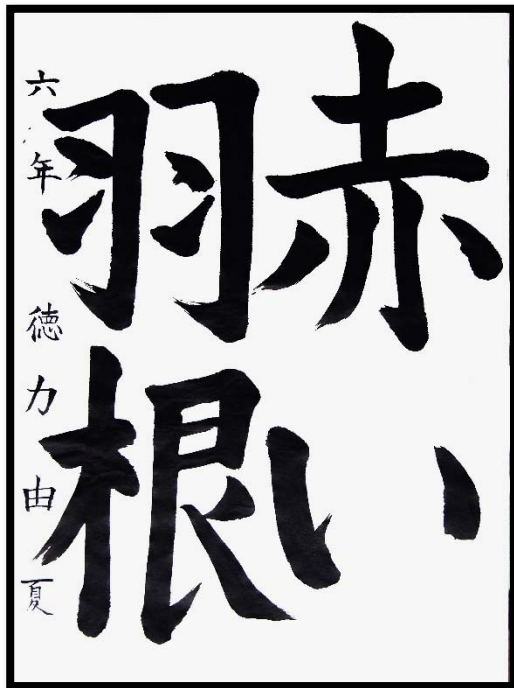 赤い
羽根
六年 徳力由夏